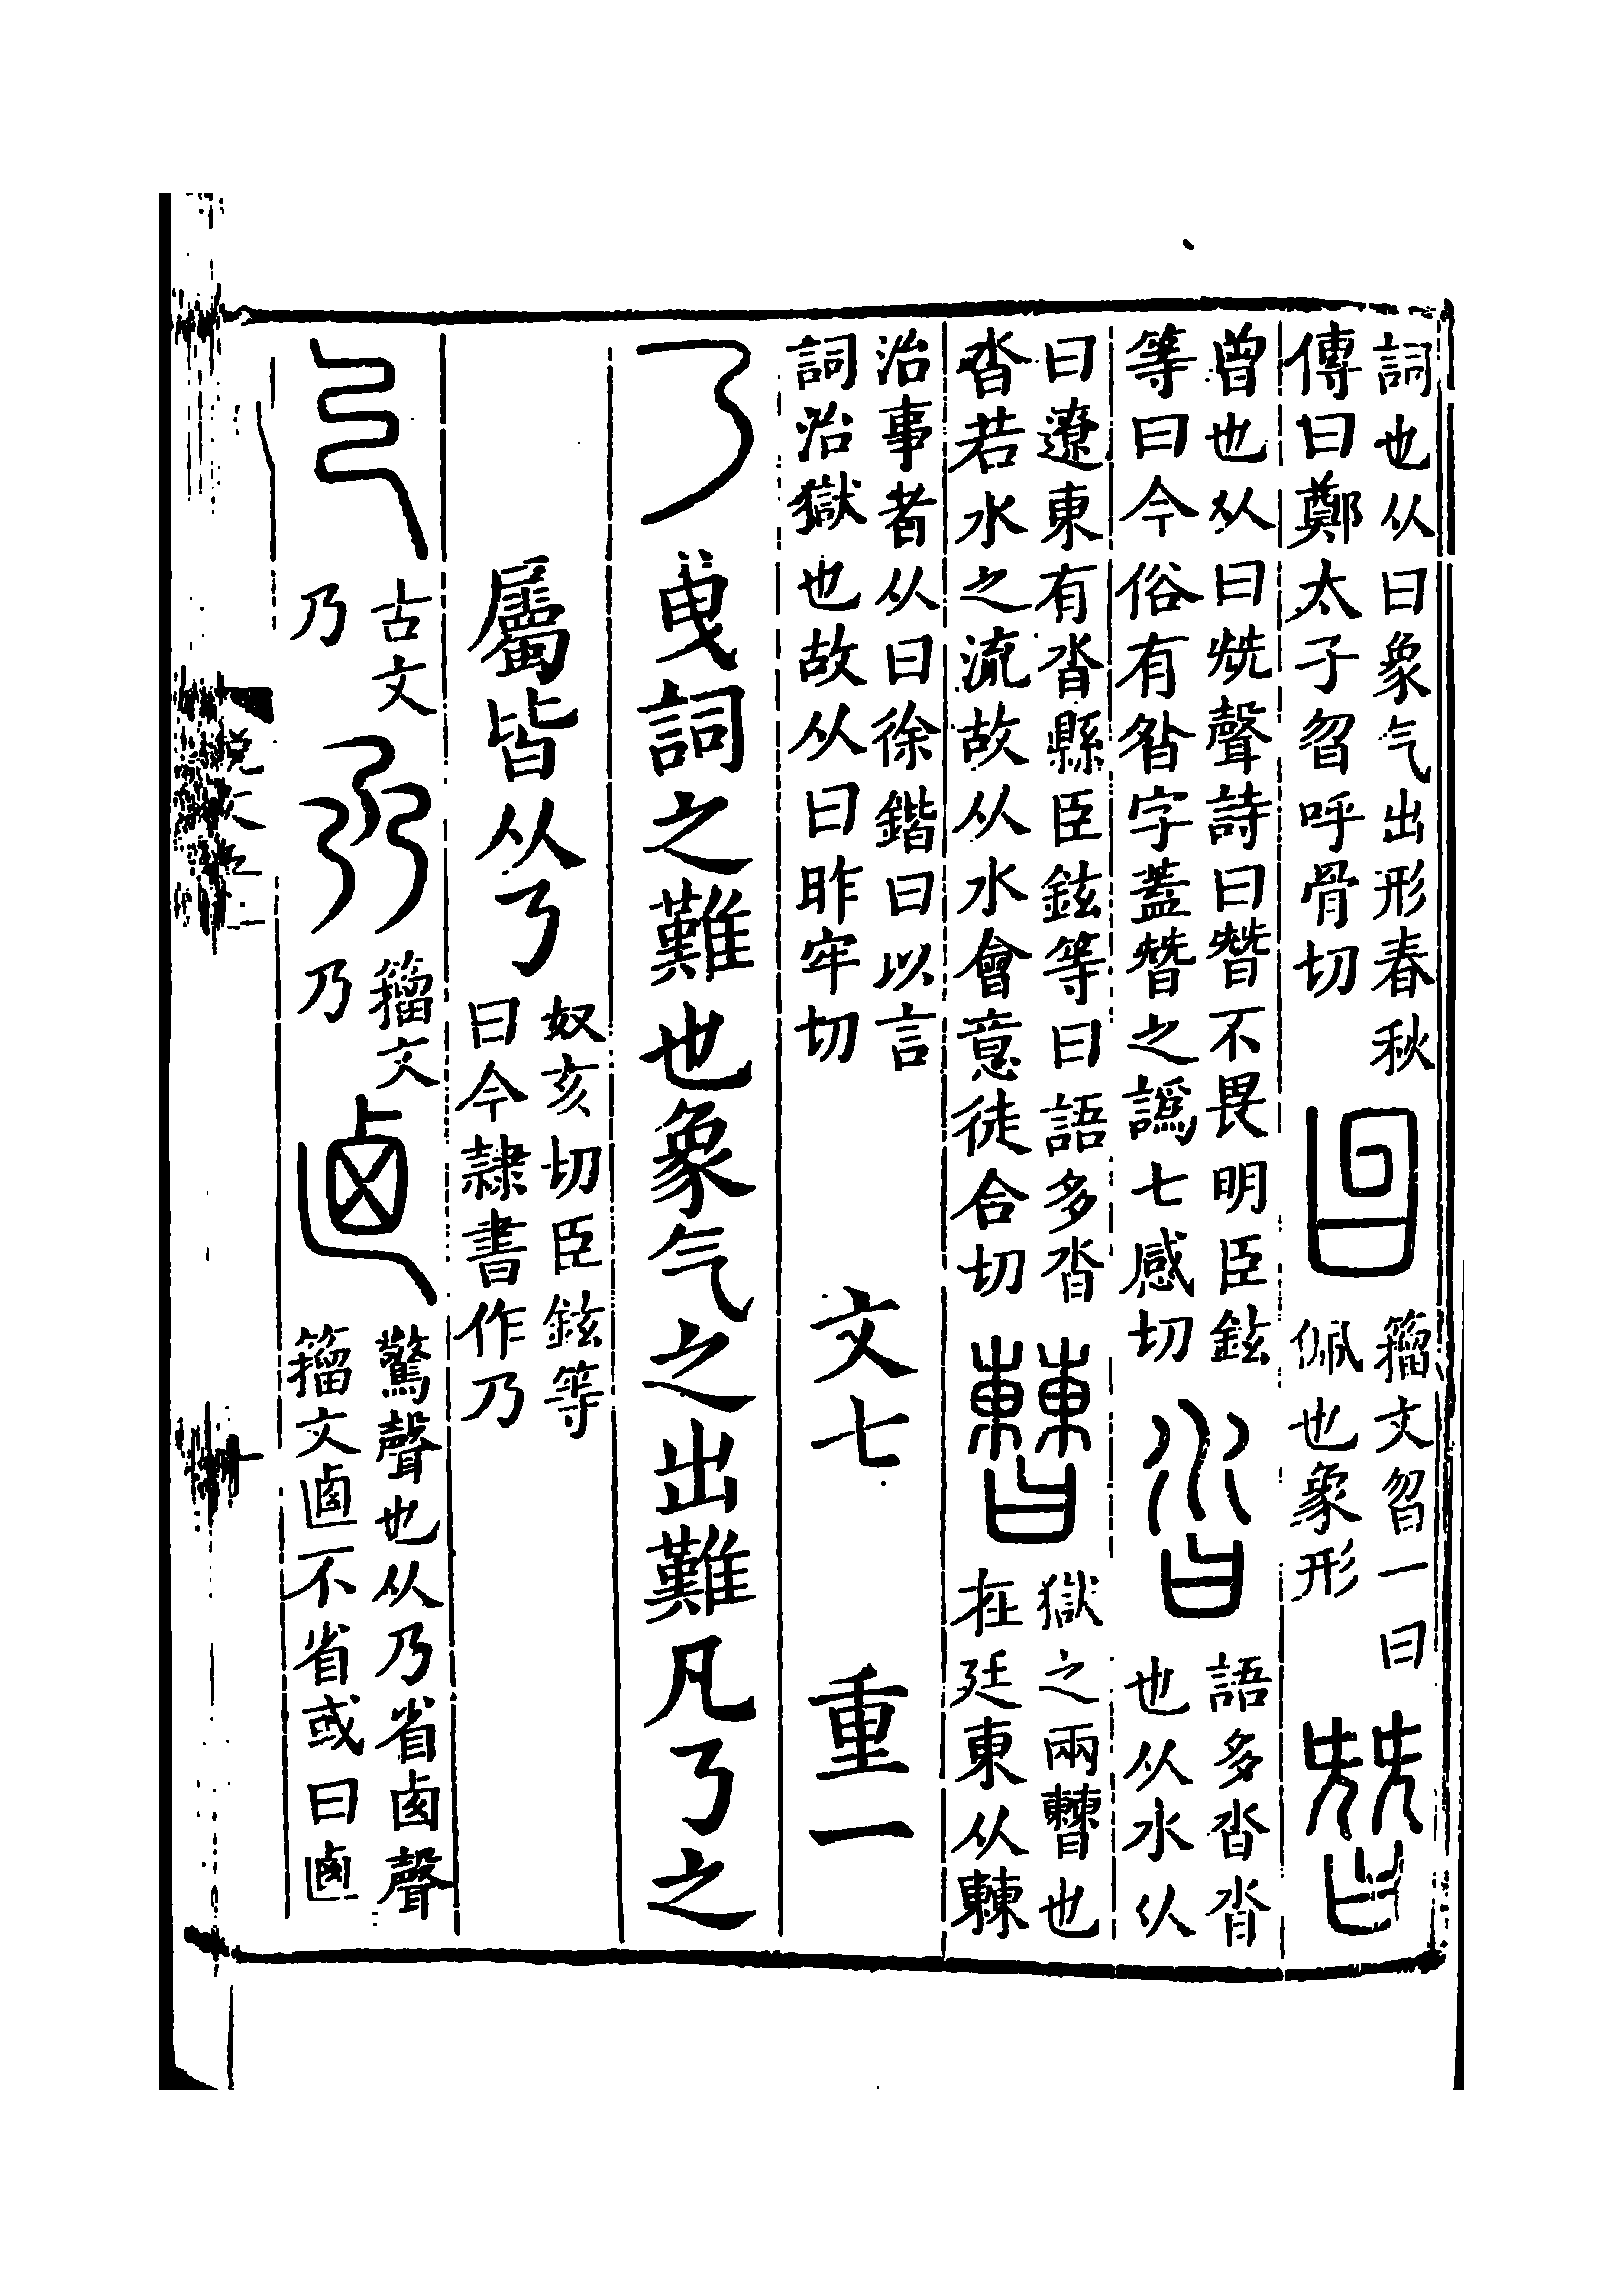 詞也从曰象气出形春秋
傳曰鄭太子曶呼骨切
𡆧
籒文曶一曰
佩也象形
朁
曾也从曰兓聲詩曰朁不畏明臣鉉
等曰今俗有昝字蓋朁之譌七感切
沓
語多沓沓
也从水从
曰遼東有沓縣臣鉉等曰語多沓
沓若水之流故从水會意徒合切
𣍘
獄之兩𣍘也
在廷東从㯥
治事者从曰徐鍇曰以言
詞治獄也故从曰昨牢切
文七 重一
𠄎曳詞之難也象气之出難凡𠄎之
屬皆从𠄎
奴亥切臣鉉等
曰今隸書作乃
古文
乃
𠄕
籒文
乃
𠧟
驚聲也从乃省卥聲
籒文𠧟不省或曰𠧟